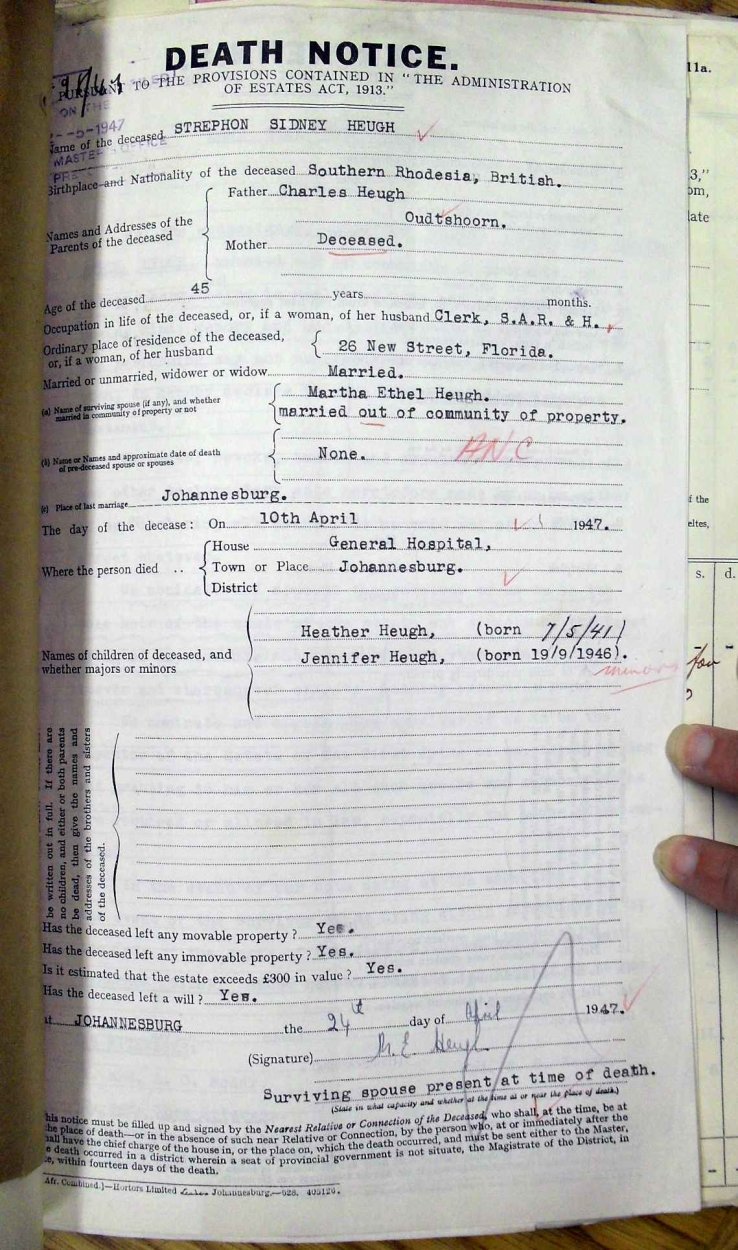 DEATH NOTICE.
PURSUANT TO THE PROVISIONS CONTAINED IN "THE ADMINISTRATION
OF ESTATES ACT, 1913."
-5-1947
MASTER'S OFFICE
Name of the deceased STREPHON SIDNEY HEUGH
Birthplace and Nationality of the deceased Southern Rhodesia, British.
Names and Addresses of the
Parents of the deceased
Father Charles Heugh
Oudtshoorn.
Mother Deceased.
Age of the deceased 45 years months.
Occupation in life of the deceased, or, if a woman, of her husband Clerk, S.A.R. & H.
Ordinary place of residence of the deceased,
or, if a woman, of her husband
26 New Street, Florida.
Married or unmarried, widower or widow Married.
(a) Name of surviving spouse (if any), and whether
married in community of property or not
Martha Ethel Heugh.
married out of community of property.
(b) Name or Names and approximate date of death
of pre-deceased spouse or spouses
None. A.N.C
(c) Place of last marriage Johannesburg.
The day of the decease: On 10th April 1947.
Where the person died ..
House General Hospital,
Town or Place Johannesburg.
District
Names of children of deceased, and
whether majors or minors
Heather Heugh, (born 7/5/41)
Jennifer Heugh, (born 19/9/1946).
minors
be written out in full. If there are
no children, and either or both parents
be dead, then give the names and
addresses of the brothers and sisters
of the deceased.
Has the deceased left any movable property? Yes.
Has the deceased left any immovable property? Yes.
Is it estimated that the estate exceeds £300 in value? Yes.
Has the deceased left a will? Yes.
at JOHANNESBURG the 24th day of April 1947.
(Signature) M. E. Heugh
Surviving spouse present at time of death.
(State in what capacity and whether at the time at or near the place of death.)
his notice must be filled up and signed by the Nearest Relative or Connection of the Deceased, who shall, at the time, be at
the place of death—or in the absence of such near Relative or Connection, by the person who, at or immediately after the
all have the chief charge of the house in, or the place on, which the death occurred, and must be sent either to the Master,
e death occurred in a district wherein a seat of provincial government is not situate, the Magistrate of the District, in
e, within fourteen days of the death.
Aft. Combined.)—Hortors Limited Johannesburg.—528. 405126.
11a.
3,"
om,
late
f the
eltes,
s. d.
for